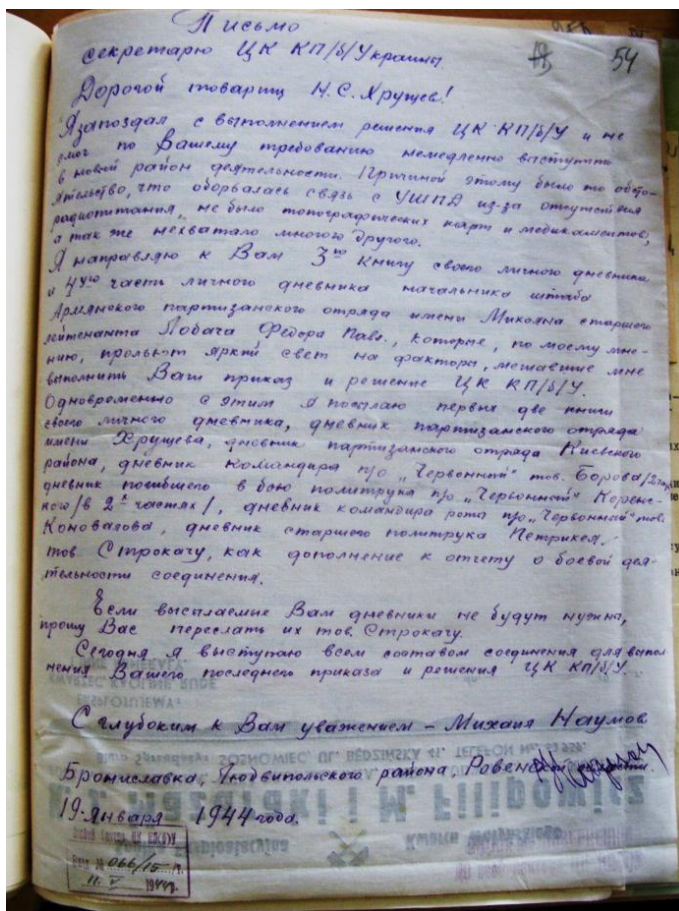 54
Письмо
секретарю ЦК КП/б/Украины
Дорогой товарищ Н.С. Хрущев!
Я запоздал с выполнением решения ЦК КП/б/У и не
смог по Вашему требованию немедленно выступить
в новый район деятельности. Причиной этому было то обсто-
ятельство, что оборвалась связь с УШПД из-за отсутствия
радиопитания, не было топографических карт и медикаментов,
а так же нехватало многого другого.
Я направляю к Вам 3ю книгу своего личного дневника
и 4 части личного дневника начальника штаба
Армянского партизанского отряда имени Микояна старшего
лейтенанта Лобача Федора Павл., которые, по моему мне-
нию, прольют яркий свет на факторы, мешавшие мне
выполнить Ваш приказ и решение ЦК КП/б/У.
Одновременно с этим я посылаю первых две книги
своего личного дневника, дневник партизанского отряда
имени Хрущева, дневник партизанского отряда Киевского
района, дневник командира п/о „Червонный" тов. Борова/2
дневник погибшего в бою политрука п/о „Червонный" Коренс-
кого/в 2х частях/, дневник командира роты п/о „Червонный" тов.
Коновалова, дневник старшего политрука Петрикея.
тов Строкачу, как дополнение к отчету о боевой дея-
тельности соединения.
Если высылаемые Вам дневники не будут нужны,
прошу Вас переслать их тов. Строкачу.
Сегодня я выступаю всем составом соединения для выпол
нения Вашего последнего приказа и решения ЦК КП/б/У.
С глубоким к Вам уважением – Михаил Наумов
Брониславка, Людвипольского района Ровенской области.
19 января 1944 года.
BIURO SPRZEDAŻY: SOSNOWIEC, UL. BĘDZIŃSKA 41. TELEFON
i M. Filipowicz
066/15
11. V 1944г.